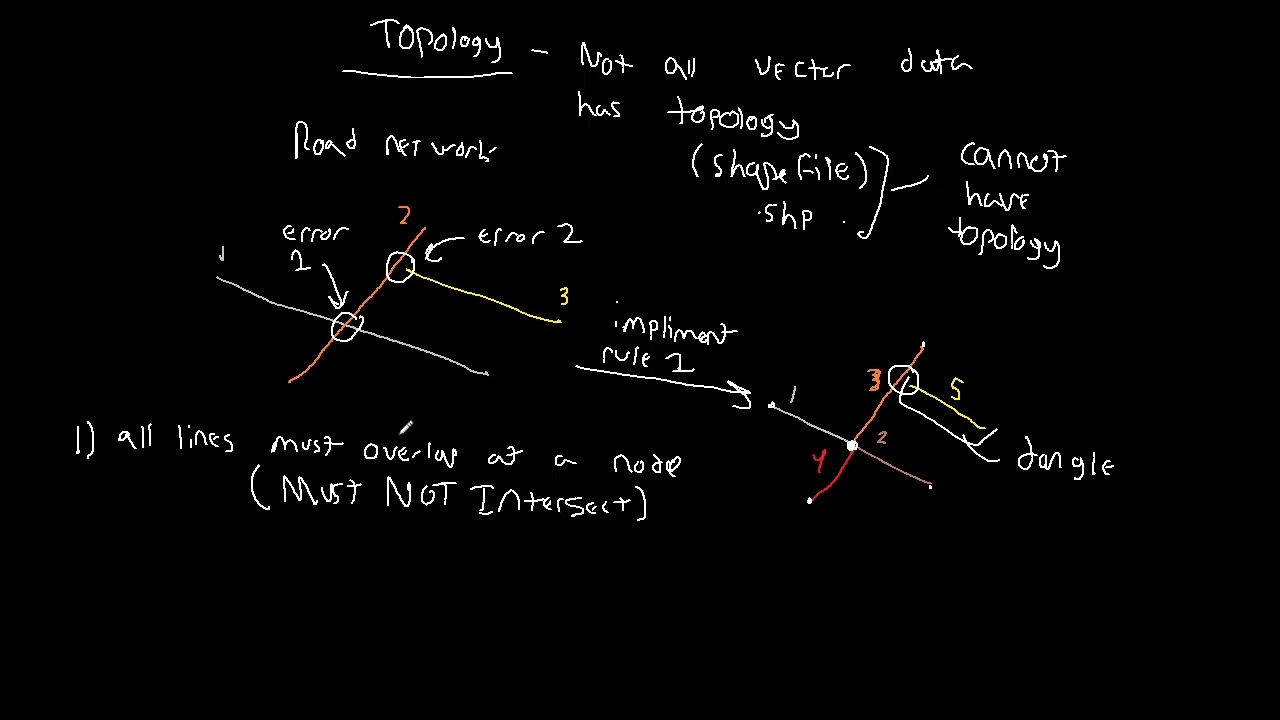 Topology - Not all vector data
has topology
Road network
(shapefile)
.shp
cannot
have
topology
2
error
1
error 2
1
3
impliment
rule 1
1
3
5
2
4
dangle
1) all lines must overlap at a node
(Must NOT Intersect)